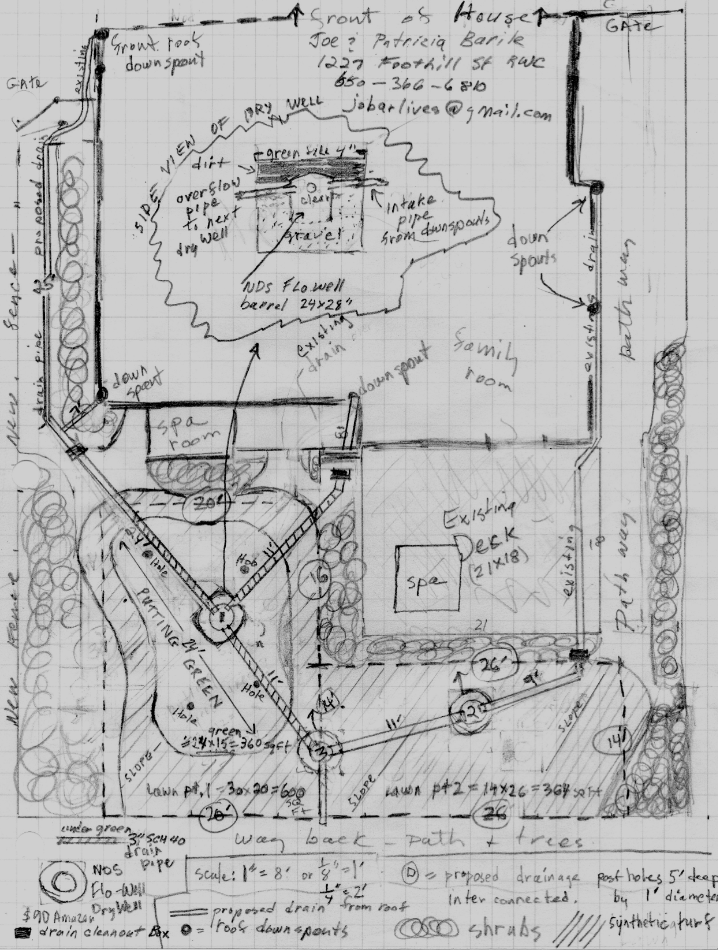 Front of House
Joe & Patricia Barile
1227 Foothill St RWC
650-366-6810
jobarlives@gmail.com
GATE
Front roof
downspout
existing
GATE
SIDE VIEW OF DRY WELL
green side 4"
dirt
overflow
pipe
to next
dry
well
gravel
intake
pipe
from downspouts
NDS Flo-well
barrel 24x28"
down
spouts
existing drain
path way
proposed drain
drain pipe
New Fence
existing
drain
down
spout
downspout
family
room
spa
room
20'
24'
Hole
Hole
11'
16
Existing
Deck
(21x18)
spa
21
existing
18
Path way
New Fence
PUTTING GREEN
24'
Hole
Hole
11'
14'
26'
9'
11'
2
3
slope
14'
green
=24x15=360 sq ft
slope
Lawn pt.1 = 30x20=600
sq
ft
slope
Lawn pt 2 = 14x26=364 sq ft
20'
26
way back - path + trees
under green
3" SCH 40
drain
pipe
NDS
Flo-Well
Dry Well
$90 Amazon
drain cleanout Box
Scale: 1" = 8' or 1/8" = 1'
1/4" = 2'
= proposed drain from roof
= roof downspouts
= proposed drainage post holes 5' deep
inter connected. by 1' diameter
shrubs
synthetic turf